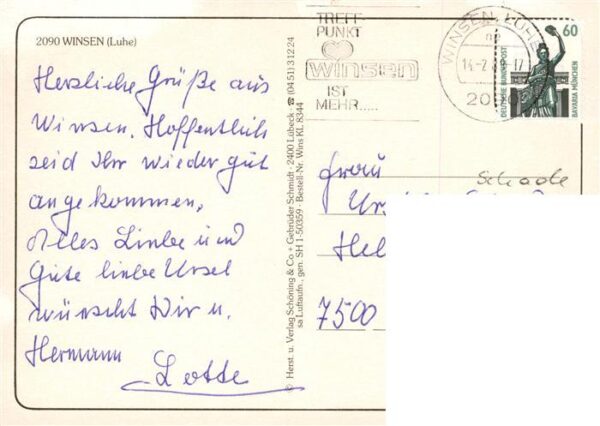 2090 WINSEN (Luhe)
Herzliche Grüße aus
Winsen. Hoffentlich
seid Ihr wieder gut
angekommen,
Alles Liebe und
Gute liebe Ursel
wünscht Dir u.
Hermann
Lotte
© Herst. u. Verlag Schöning & Co + Gebrüder Schmidt · 2400 Lübeck · ☎ (04 51) 3 12 24
sa Luftaufn., gen. SH 1-50359 · Bestell-Nr. Wins KL 8344
TREFF-
PUNKT
winsen
IST
MEHR.....
WINSEN, LUHE
60
DEUTSCHE BUNDESPOST
BAVARIA MÜNCHEN
Schade
Frau
Hel
7500